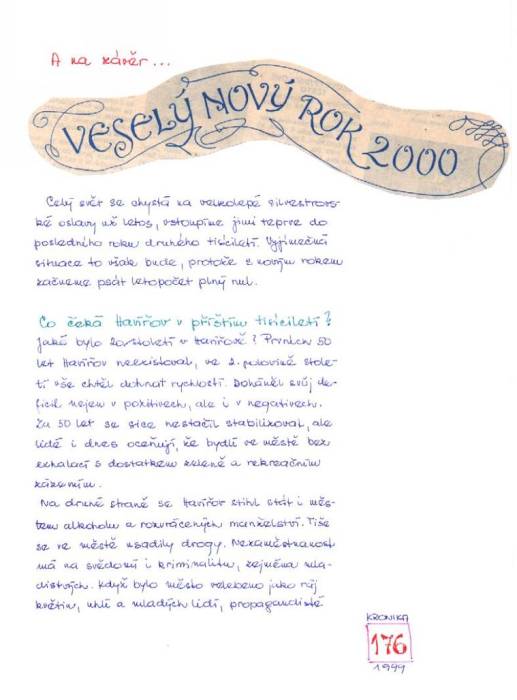 A na závěr...
VESELÝ NOVÝ ROK 2000
Celý svět se chystá na velkolepé silvestrov-
ské oslavy už letos, vstoupíme jimi teprve do
posledního roku druhého tisíciletí. Vyjímečná
situace to však bude, protože s novým rokem
začneme psát letopočet plný nul.
Co čeká Havířov v příštím tisíciletí?
Jaké bylo 20. století v Havířově? Prvních 50
let Havířov neexistoval, ve 2. polovině stole-
tí vše chtěl dohnat rychlostí. Doháněl svůj de-
ficit nejen v pozitivech, ale i v negativech.
Za 50 let se sice nestačil stabilizovat, ale
lidé i dnes oceňují, že bydlí ve městě bez
exhalací s dostatkem zeleně a rekreačním
zázemím.
Na druhé straně se Havířov stihl stát i měs-
tem alkoholu a rozvrácených manželství. Tiše
se ve městě usadily drogy. Nezaměstnanost
má na svědomí i kriminalitu, zejména mla-
distvých. Když bylo město velebeno jako ráj
květin, uhlí a mladých lidí, propagandisté
KRONIKA
176
1999